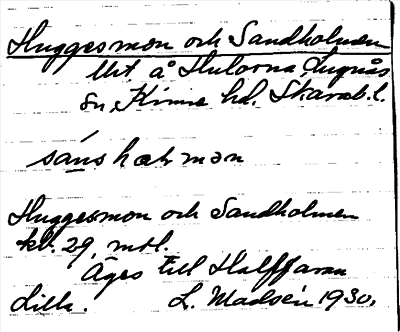 Huggesmon och Sandholmen
Utt. å Hulorna, Lugnås
sn, Kinne hd. Skarab. l.
sánshætmən
Huggesmon och Sandholmen
kl. 29, mtl.
Äges till Halffaran
Lilla. L. Madsén 1930.